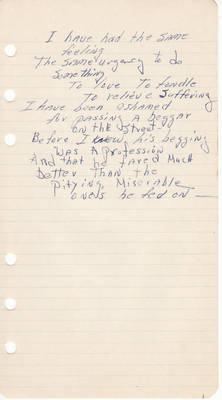 I have had the same
feeling
The same urgency to do
something
To love To fondle
To relieve suffering
I have been ashamed
for passing a beggar
on the street -
Before I knew his begging
was a profession
And that he fared much
better than the
pitying, Miserable
ones he fed on —